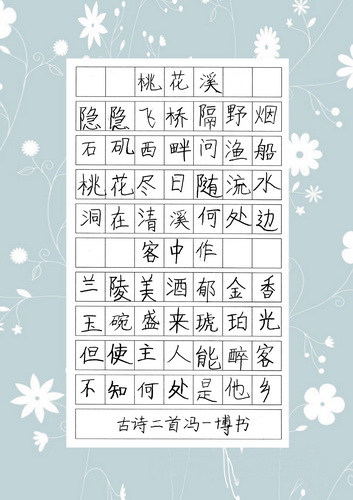 桃花溪
隐隐飞桥隔野烟
石矶西畔问渔船
桃花尽日随流水
洞在清溪何处边
客中作
兰陵美酒郁金香
玉碗盛来琥珀光
但使主人能醉客
不知何处是他乡
古诗二首冯一博书